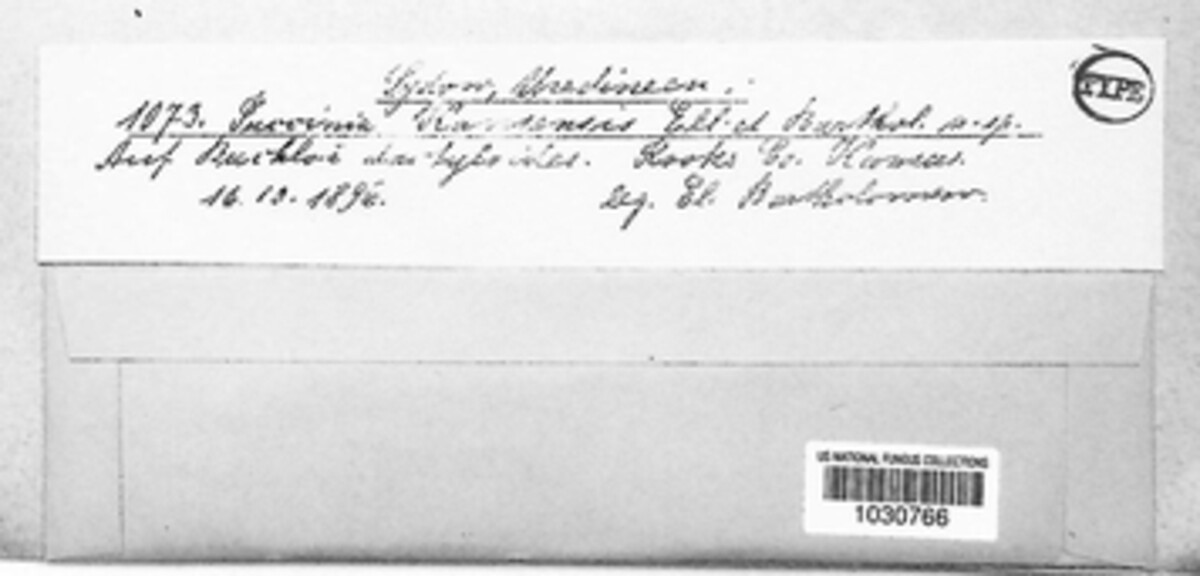 Sydow, Uredineen.
TYPE
1073. Puccinia Kansensis Ell. et Barthol. n. sp.
Auf Buchloë dactyloides. Rooks Co. Kansas.
16. 10. 1896. leg. El. Bartholomew.
US NATIONAL FUNGUS COLLECTIONS
1030766